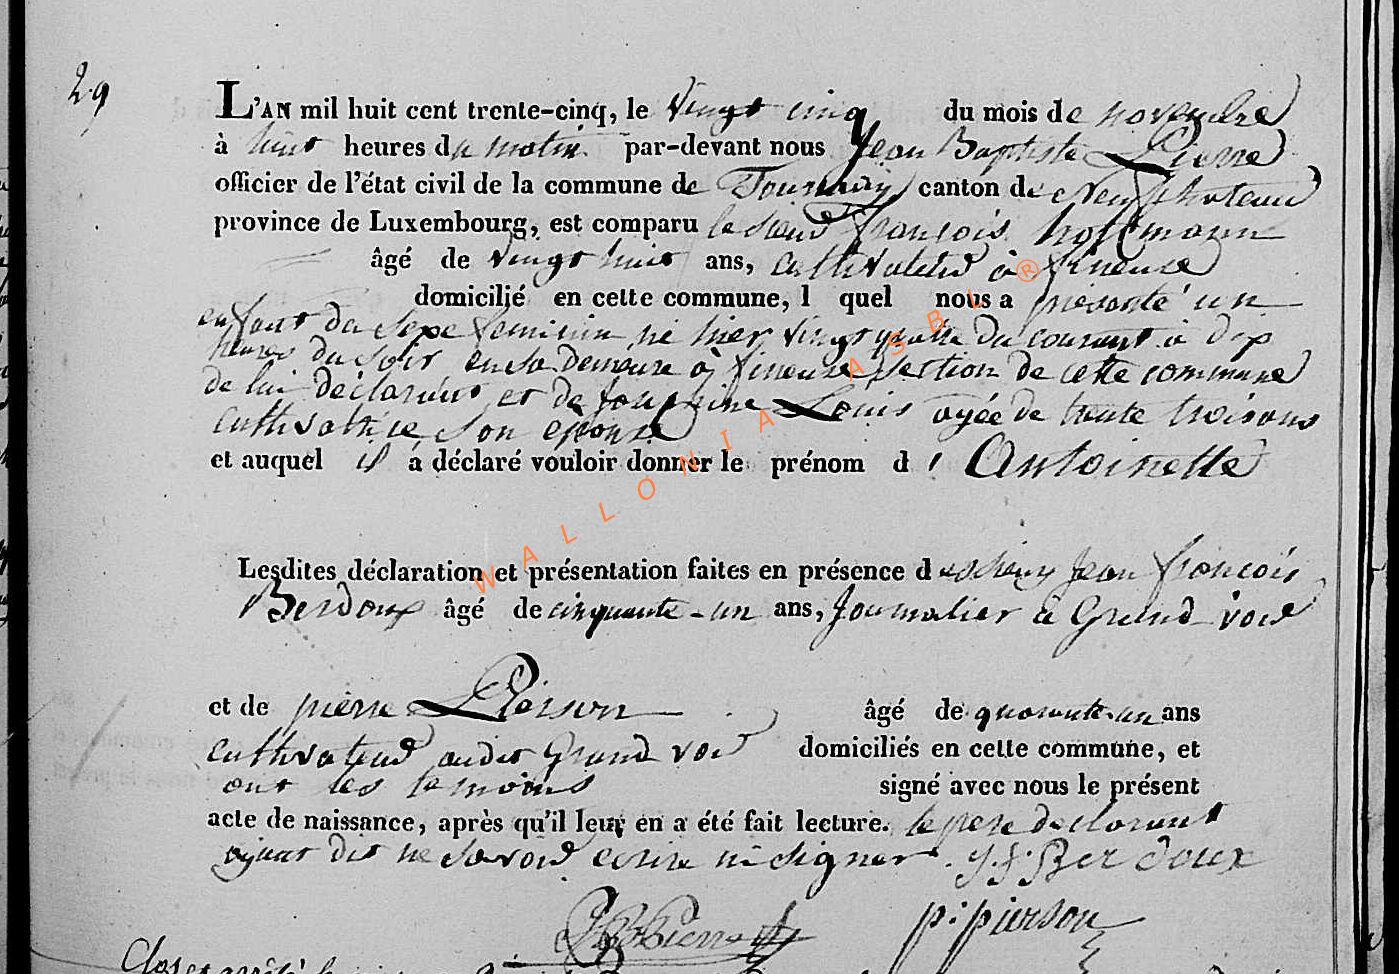 29
L'AN mil huit cent trente-cinq, le vingt cinq du mois de novembre
à huit heures du matin par-devant nous Jean Baptiste Pierre
officier de l'état civil de la commune de Tournay canton de Neufchateau
province de Luxembourg, est comparu le sieur françois hoffmann
âgé de vingt huit ans, cultivateur à fineuse
domicilié en cette commune, l quel nous a présenté un
enfant du sexe feminin né hier vingt quatre du courant à dix
heures du soir en sa demeure à fineuse section de cette commune
de lui déclarant et de Josephine Louis agée de trente trois ans
cultivatrice son épouse
et auquel il a déclaré vouloir donner le prénom d' Antoinette
Lesdites déclaration et présentation faites en présence des sieurs Jean françois
Berdoux âgé de cinquante-un ans, Journalier à Grand voir
et de pierre Pierson âgé de quarante-un ans
cultivateur audit Grand voir domiciliés en cette commune, et
ont les temoins signé avec nous le présent
acte de naissance, après qu'il leur en a été fait lecture. le pere declarant
ayant dit ne savoir ecrire ni signer. J. f. Berdoux
JB Pierre p: pierson
Clos et arrêté
WALLONIA ASBL ®